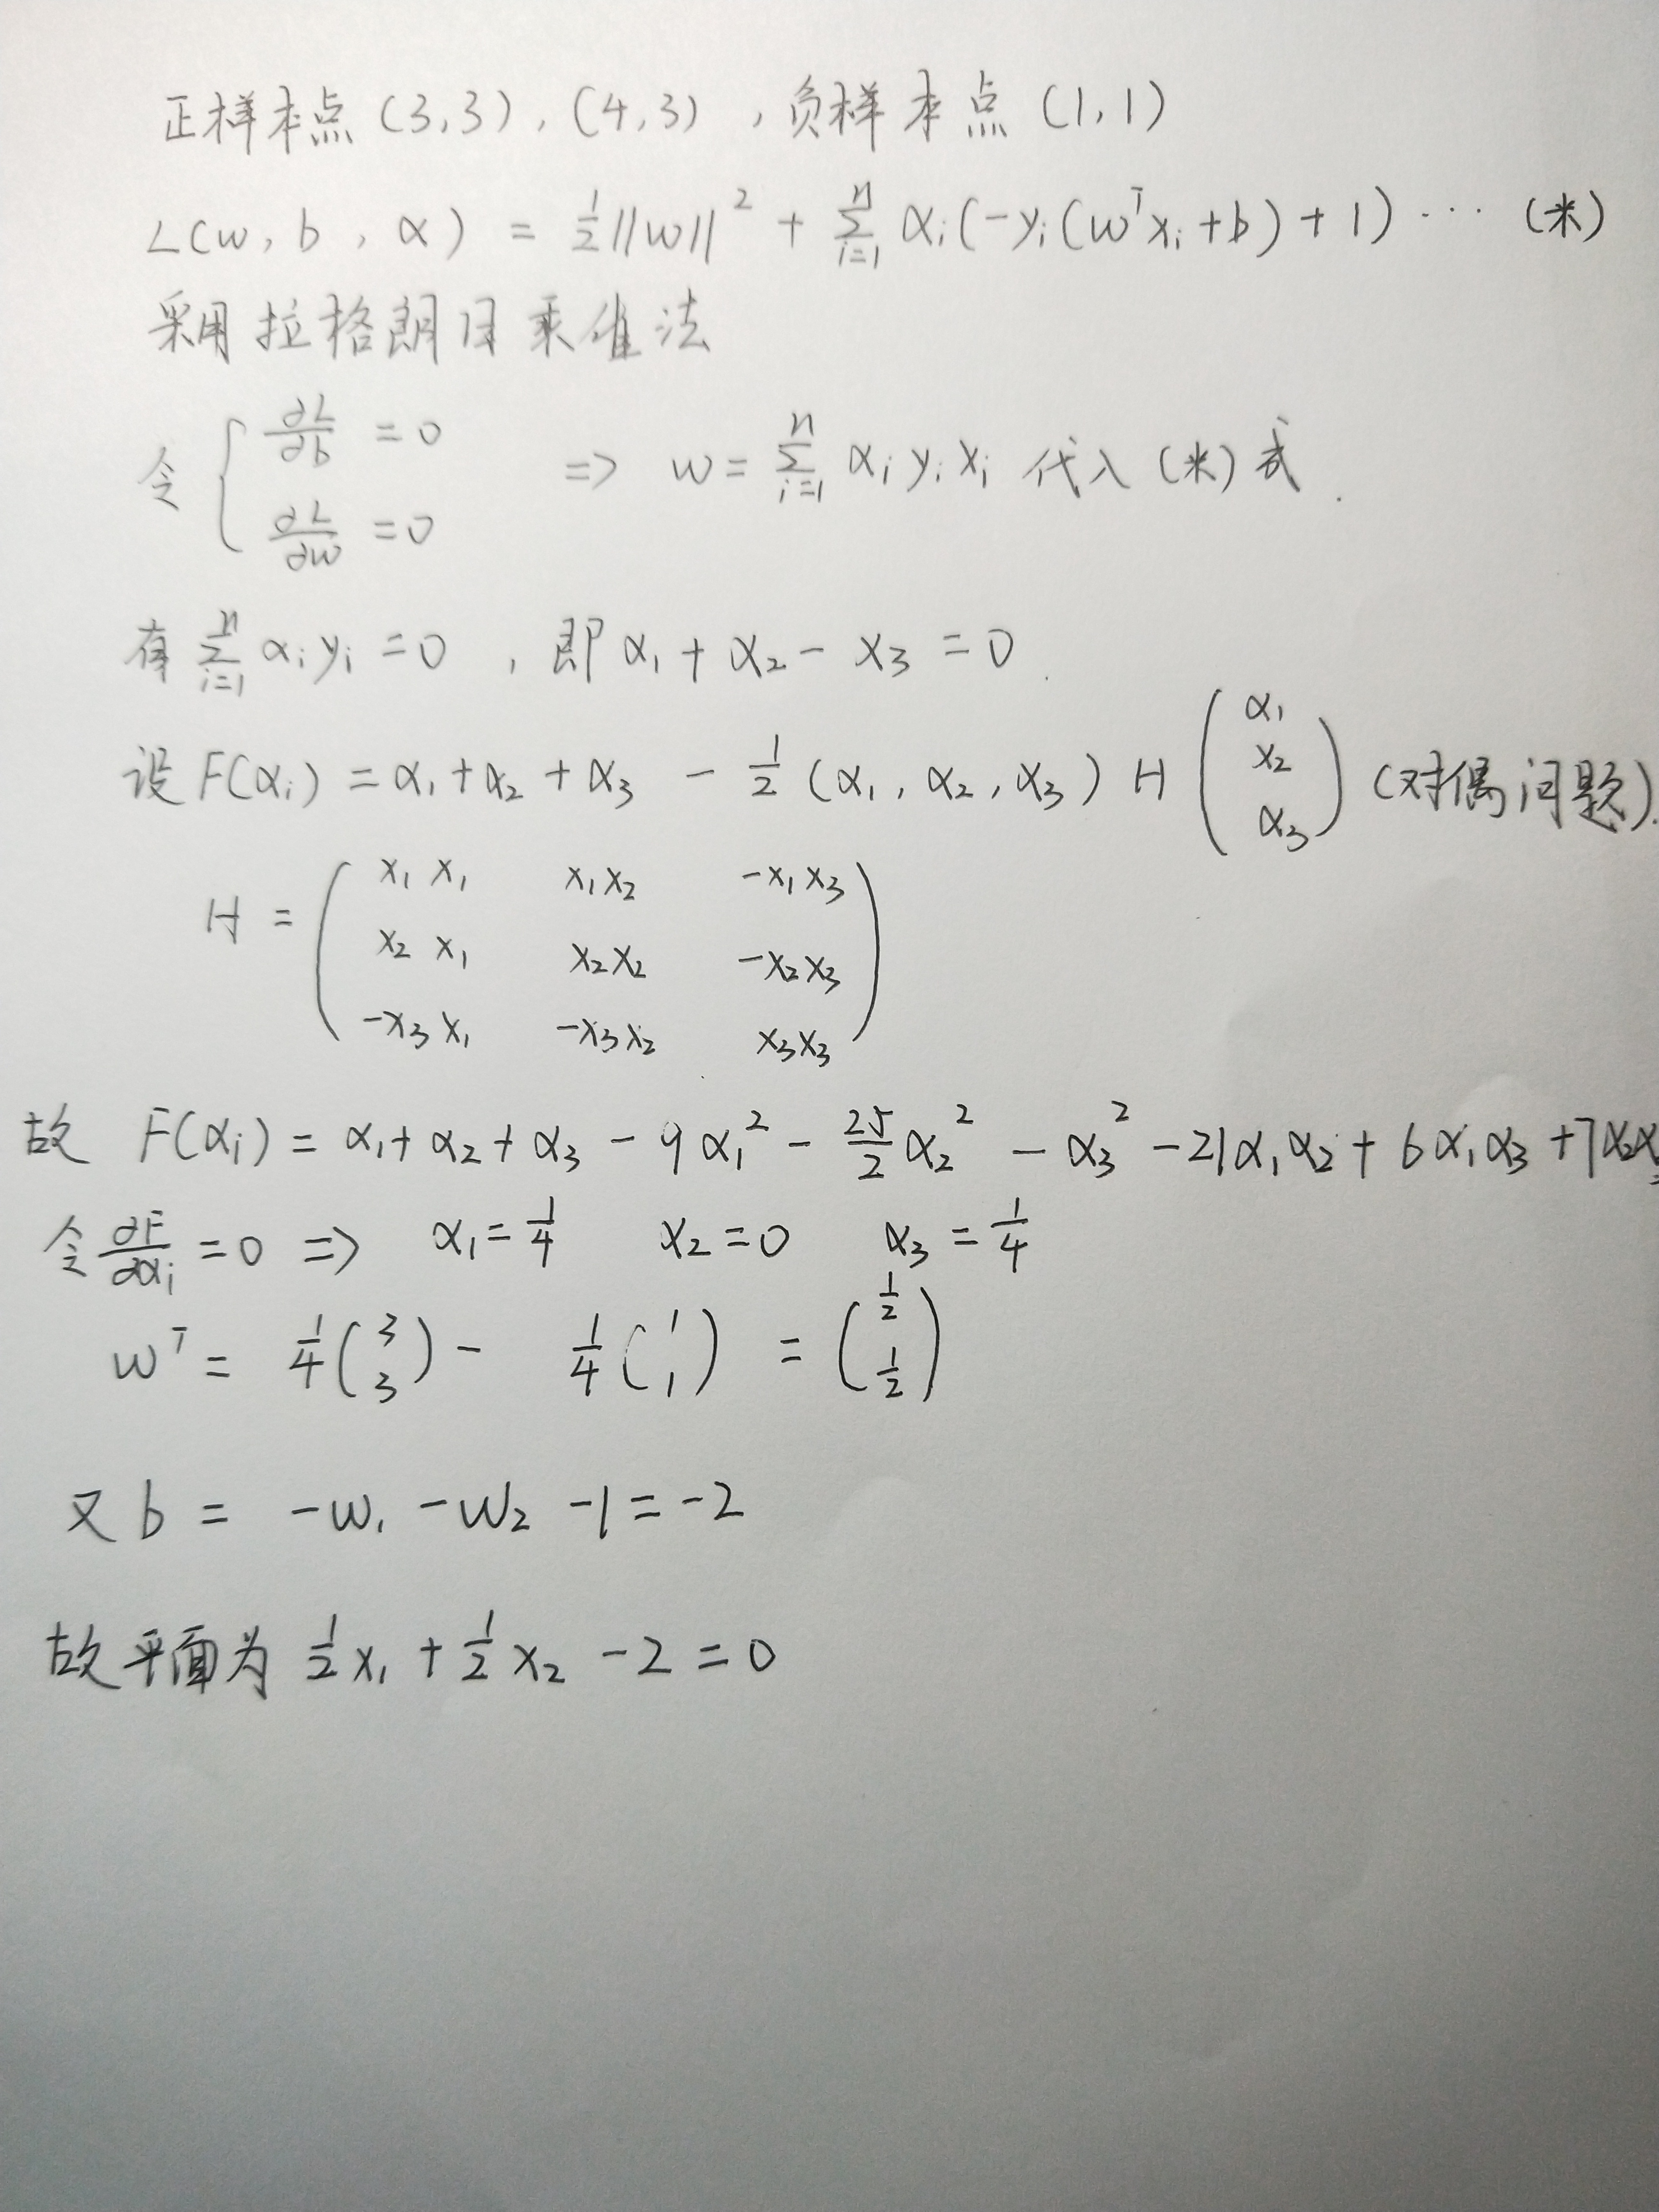 正样本点 (3,3), (4,3) ,负样本点 (1,1)
L(w, b, α) = 1/2||w||² + Σ_{i=1}^{n} α_i(-y_i(w^T x_i + b) + 1) ··· (*)
采用拉格朗日乘值法
令 { ∂L/∂b = 0
∂L/∂w = 0 => w = Σ_{i=1}^{n} α_i y_i x_i 代入 (*) 式.
有 Σ_{i=1}^{n} α_i y_i = 0 , 即 α₁ + α₂ - α₃ = 0.
设 F(α_i) = α₁ + α₂ + α₃ - 1/2 (α₁, α₂, α₃) H (α₁ α₂ α₃) (对偶问题).
H = ( x₁x₁ x₁x₂ -x₁x₃
x₂x₁ x₂x₂ -x₂x₃
-x₃x₁ -x₃x₂ x₃x₃ )
故 F(α_i) = α₁ + α₂ + α₃ - 9α₁² - 25/2 α₂² - α₃² - 21α₁α₂ + 6α₁α₃ + 7α₂α₃
令 ∂F/∂α_i = 0 => α₁ = 1/4 α₂ = 0 α₃ = 1/4
w^T = 1/4 (3 3) - 1/4 (1 1) = (1/2 1/2)
又 b = -w₁ - w₂ - 1 = -2
故平面为 1/2 x₁ + 1/2 x₂ - 2 = 0